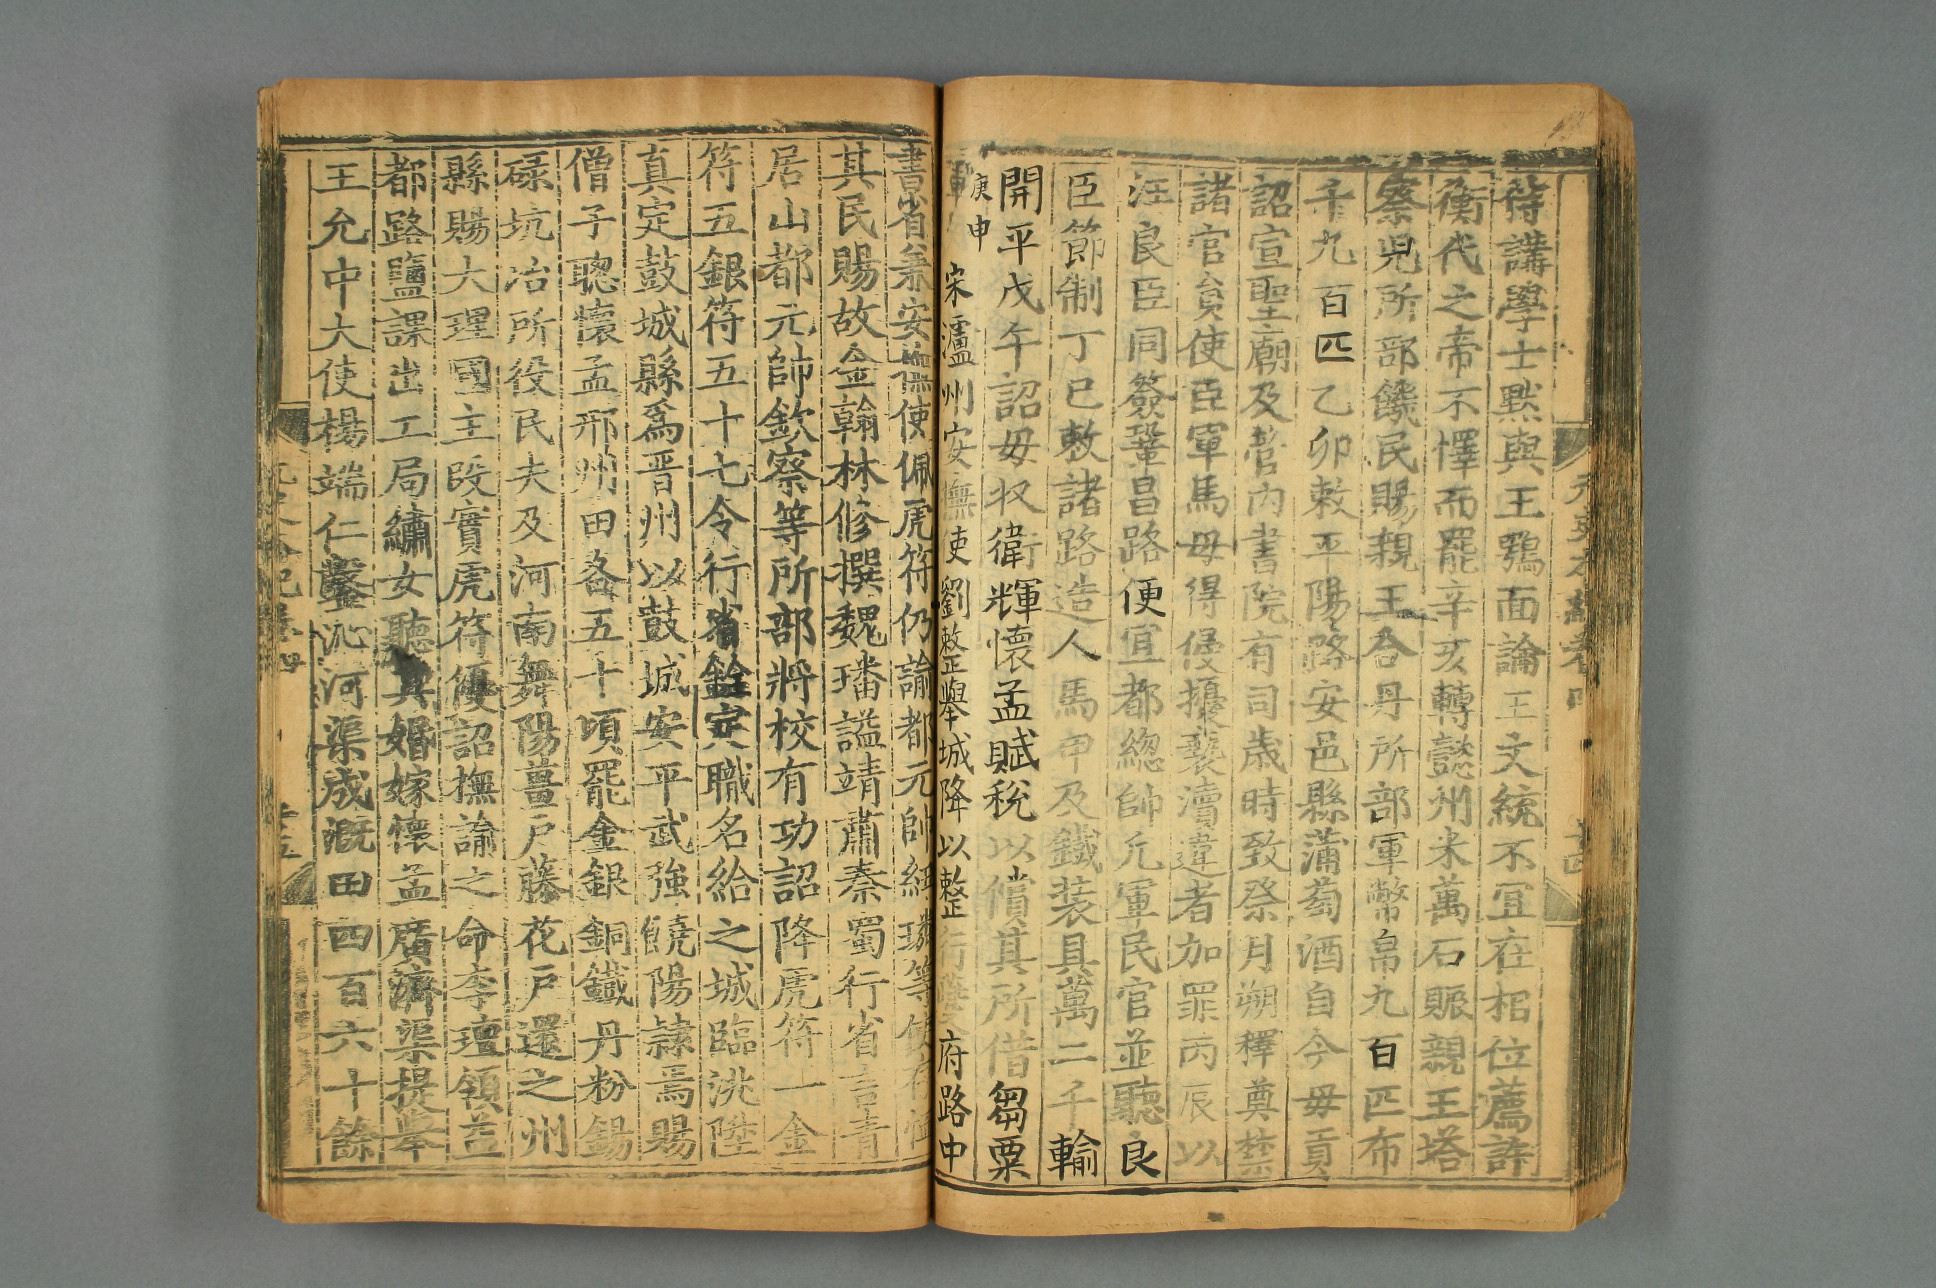 元史本紀卷四
待講學士默與王鶚面論王文統不宜在相位薦許
衡代之帝不懌而罷辛亥轉懿州米萬石賑親王塔
察兒所部饑民賜親王合丹所部軍幣帛九百匹布
千九百匹乙卯敕平陽路安邑縣蒲萄酒自今毋貢
詔宣聖廟及管內書院有司歲時致祭月朔釋奠禁
諸官員使臣軍馬毋得侵擾褻瀆違者加罪丙辰以
汪良臣同簽鞏昌路便宜都總帥凡軍民官並聽良
臣節制丁巳敕諸路造人馬甲及鐵裝具萬二千輸
開平戊午詔毋收衛輝懷孟賦稅以償其所借芻粟
庚申宋瀘州安撫使劉整舉城降以整行夔府路中
書省兼安撫使佩虎符仍諭都元帥紐璘等使存恤
其民賜故金翰林修撰魏璠謚靖肅秦蜀行省言青
居山都元帥欽察等所部將校有功詔降虎符一金
符五銀符五十七令行省銓定職名給之城臨洮陞
真定鼓城縣為晉州以鼓城安平武強饒陽隸焉賜
僧子聰懷孟邢州田各五十頃罷金銀銅鐵丹粉錫
碌坑冶所役民夫及河南舞陽薑戶藤花戶還之州
縣賜大理國主段實虎符優詔撫諭之命李璮領益
都路鹽課出工局繡女聽其婚嫁懷孟廣濟渠提舉
王允中大使楊端仁鑿沁河渠成溉田四百六十餘